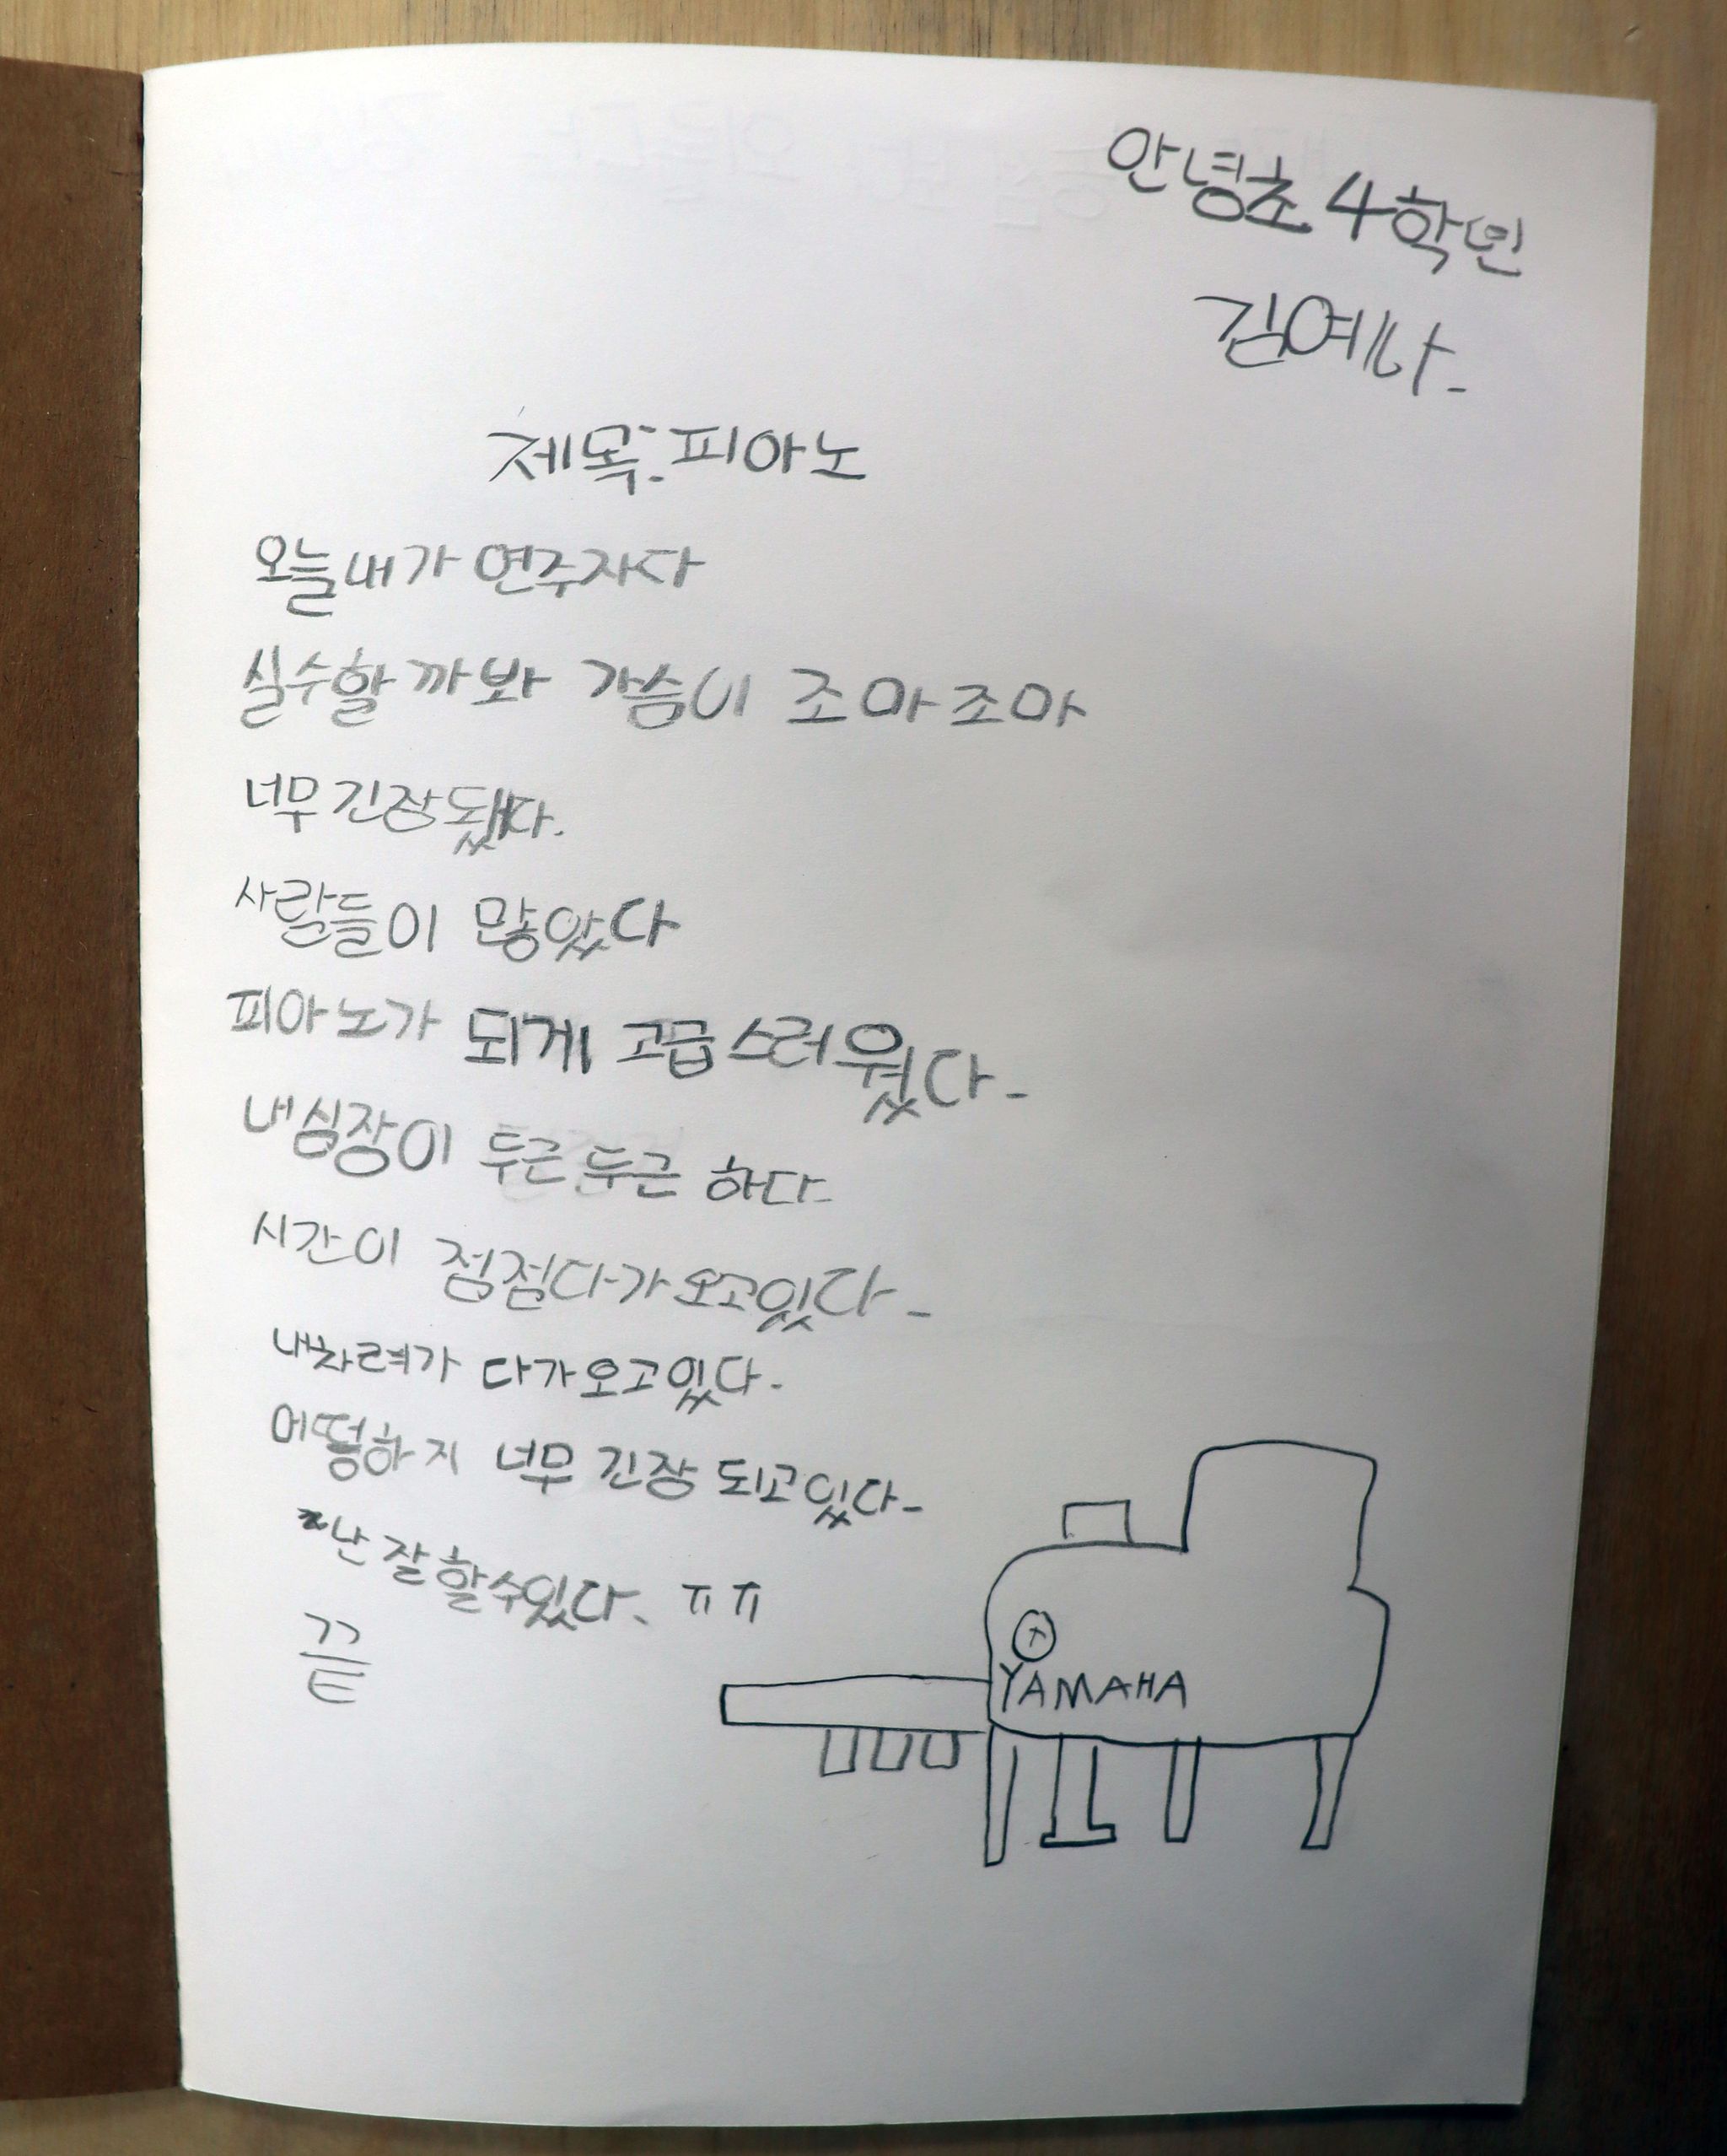 안녕초 4학년
김예나.
제목: 피아노
오늘 내가 연주자다
실수할까봐 가슴이 조마조마
너무 긴장됐다.
사람들이 많았다
피아노가 되게 고급스러웠다.
내심장이 두근두근 하다
시간이 점점다가오고있다.
내차례가 다가오고있다.
어떻하지 너무 긴장 되고있다.
난 잘할수있다. ㅠㅠ
끝
YAMAHA